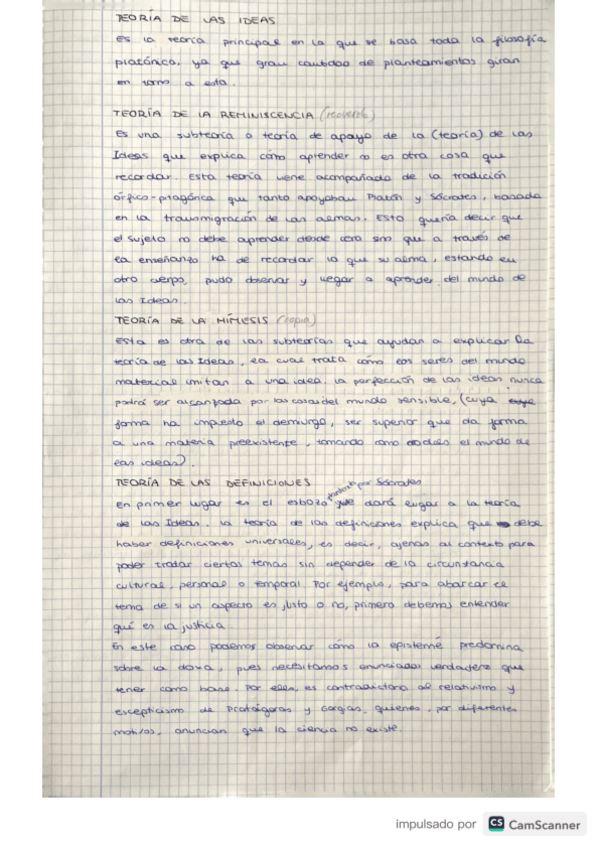 TEORÍA DE LAS IDEAS
Es la teoría principal en la que se basa toda la filosofía
platónica, ya que gran cantidad de planteamientos giran
en torno a esta.
TEORÍA DE LA REMINISCENCIA (recuerdo)
Es una subteoría o teoría de apoyo de la (teoría) de las
Ideas que explica cómo aprender no es otra cosa que
recordar. Esta teoría viene acompañada de la tradición
órfico-pitagórica que tanto apoyaban Platón y Sócrates, basada
en la transmigración de las almas. Esto quería decir que
el sujeto no debe aprender desde cero sino que a través de
la enseñanza ha de recordar lo que su alma, estando en
otro cuerpo, pudo observar y llegar a aprender del mundo de
las Ideas.
TEORÍA DE LA MÍMESIS (copia)
Esta es otra de las subteorías que ayudan a explicar la
teoría de las Ideas, la cual trata cómo los seres del mundo
material imitan a una idea. La perfección de las ideas nunca
podrá ser alcanzada por las cosas del mundo sensible, (cuya
forma ha impuesto el demiurgo, ser superior que da forma
a una materia preexistente, tomando como modelo el mundo de
las ideas).
TEORÍA DE LAS DEFINICIONES
planteado por Sócrates
En primer lugar es el esbozo que dará lugar a la teoría
de las Ideas. La teoría de las definciones explica que debe
haber definiciones universales, es decir, ajenas al contexto para
poder tratar ciertos temas sin depender de la circunstancia
cultural, personal o temporal. Por ejemplo, para abarcar el
tema de si un aspecto es justo o no, primero debemos entender
qué es la justicia.
En este caso podemos observar cómo la episteme predomina
sobre la doxa, pues necesitamos enunciados verdaderos que
tener como base. Por ello, es contradictorio al relativismo y
escepticismo de Protágoras y Gorgias, quienes, por diferentes
motivos, anuncian que la ciencia no existe.
impulsado por CS CamScanner